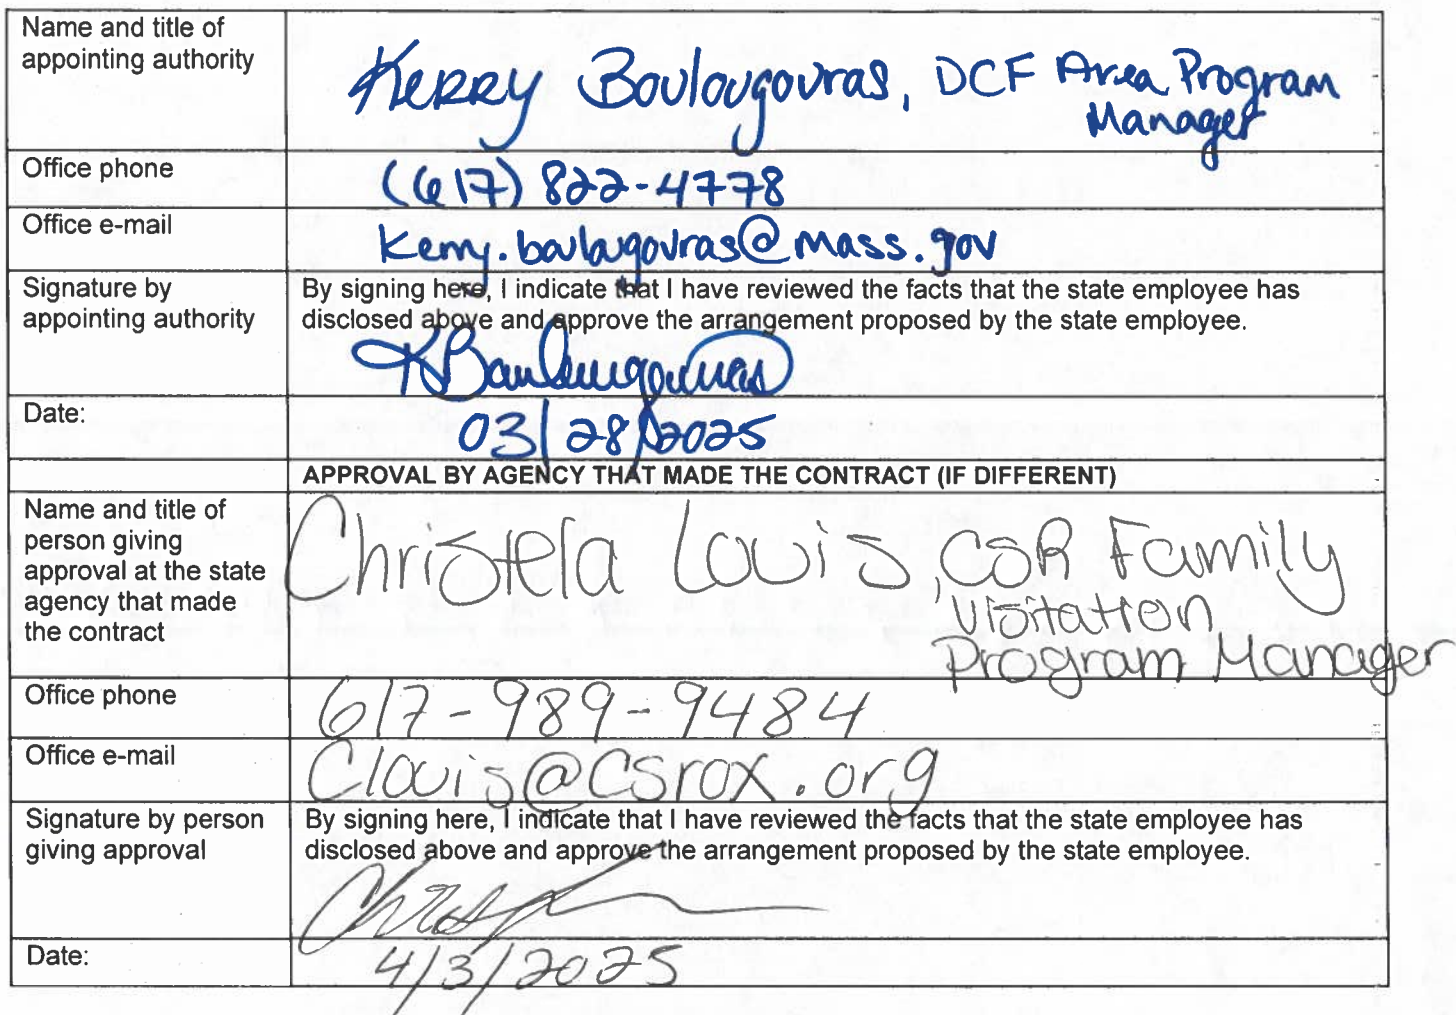 Name and title of
appointing authority
Kerry Boulougouras, DCF Area Program
Manager
Office phone
(617) 822-4778
Office e-mail
Kerry.boulougouras@mass.gov
Signature by
appointing authority
By signing here, I indicate that I have reviewed the facts that the state employee has
disclosed above and approve the arrangement proposed by the state employee.
KBoulougouras
Date:
03/28/2025
APPROVAL BY AGENCY THAT MADE THE CONTRACT (IF DIFFERENT)
Name and title of
person giving
approval at the state
agency that made
the contract
Christela Louis, CSR Family
Visitation
Program Manager
Office phone
617-989-9484
Office e-mail
Clouis@csrox.org
Signature by person
giving approval
By signing here, I indicate that I have reviewed the facts that the state employee has
disclosed above and approve the arrangement proposed by the state employee.
Date:
4/3/2025